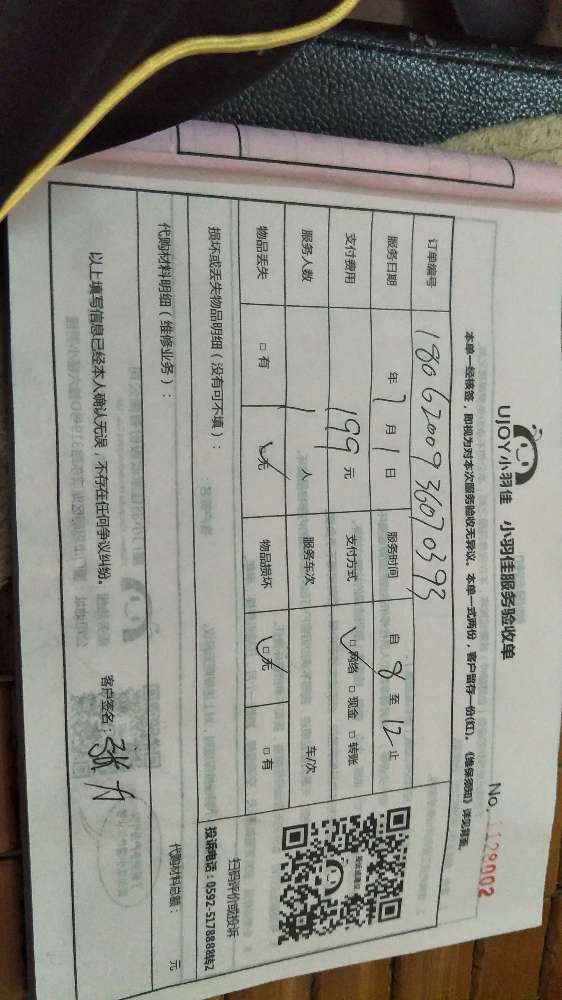 UJOY小羽佳 小羽佳服务验收单
No. 1129002
本单一经核签，即视为对本次服务验收无异议。本单一式两份，客户留存一份(红)。《维保须知》详见背面。
订单编号 1806200936070393
服务日期 年 7 月 1 日 服务时间 自 8 至 12 止
支付费用 199 元 支付方式 □ 网络 □ 现金 □ 转账
服务人数 1 人 服务车次 车/次
物品丢失 □ 有 □ 无 物品损坏 □ 无 □ 有
损坏或丢失物品明细（没有可不填）：
扫码评价或投诉
投诉电话：0592-5178888转2
代购材料明细（维修业务）：
代购材料总额： 元
以上填写信息已经本人确认无误，不存在任何争议纠纷。
客户签名：张